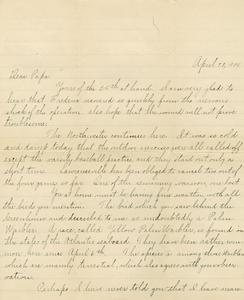 April 28, 190
Dear Papa:
Yours of the 25th at hand. I am very glad to
hear that Frederic recovered so quickly from the nervous
shock of the operation. also hope that the wound will not prove
troublesome.
The Northwester continues here. It was so cold
and damp today that the outdoor exercises were all called off
except the varsity baseball practice, and they staid out only a
short time. Lawrenceville has been obliged to cancel two out of
the four games so far. One of the warm
at home must be having fine weather with all
the birds you mention. The bird which you saw behind the
Greenhouse and described to me is undoubtedly a Palm
Warbler. A race, called Yellow Palm Warbler is found in
the states of the Atlantic seaboard. They have been rather com-
mon here since April 6th. The species is among the warblers
which are mainly terrestrial, which also agrees with your obser-
vations.
Perhaps I have never told you that I have